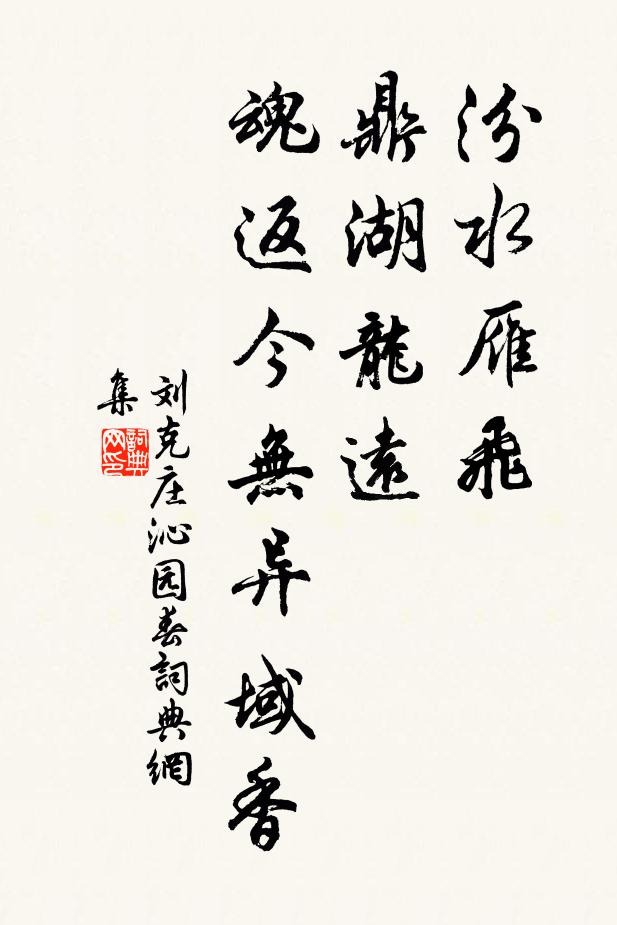 汾水雁飛
鼎湖龍遠
魂返今無异域香
刘克庄沁园春詞典網
集
詞典网印